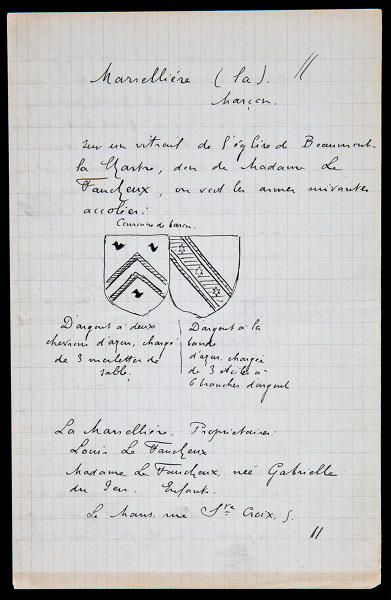 Marsellière (la).
Marçon.
sur un vitrail de l'église de Beaumont-
la Chartre, don de Madame Le
Faucheux, on voit les armes suivantes
accolées:
Couronne de baron.
D'argent à deux
chevrons d'azur, chargé
de 3 merlettes de
sable.
D'argent à la
bande
d'azur, chargée
de 3 étoiles à
6 branches d'argent
La Marsellière. Propriétaires.
Louis Le Faucheux
Madame Le Faucheux, née Gabrielle
du Jeu. Enfants.
Le Mans rue Ste Croix, 5.